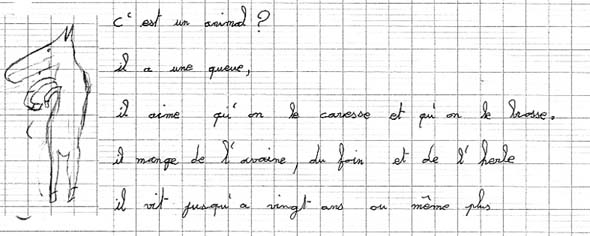 c' est un animal ?
il a une queue,
il aime qu' on le caresse et qu' on le brosse.
il mange de l' avaine, du foin et de l' herbe
il vit jusqu' a vingt ans ou même plus